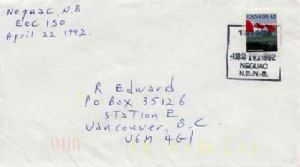 Neguac, N.B
EOC 1S0
April 22 1992.
CANADA 42
1992
NEGUAC
N.B./N.-B.
R Edward
PO Box 35126
STATION E
Vancouver, B.C
V6M 4G1